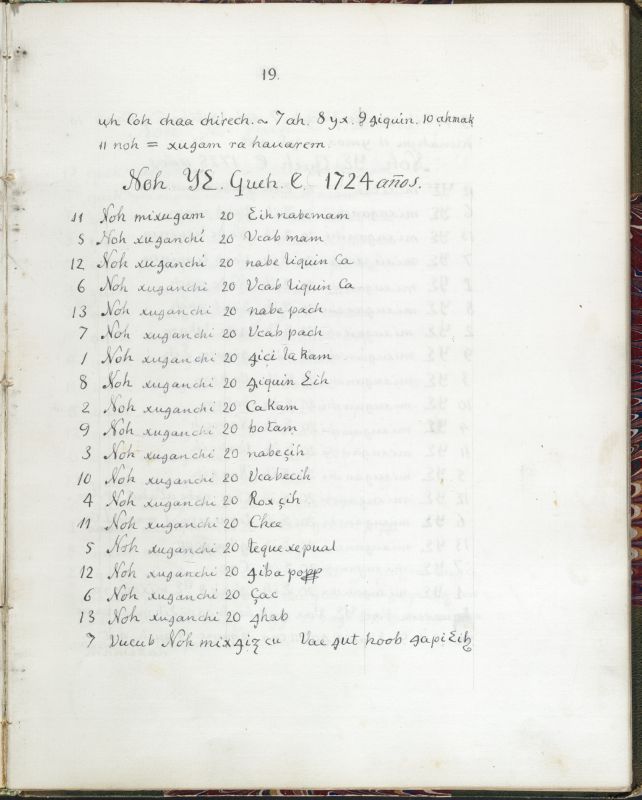 19.
uh Coh chaa chirech. ~ 7 ah. 8 yx. 9 ꜭiquin. 10 ahmak
11 noh = xuꜭam ra hauarem
Noh. Yꜫ. Queh. C. 1724 años.
11 Noh mixuꜭam 20 ꜫih nabemam
5 Noh xuꜭanchi 20 Vcab mam
12 Noh xuꜭanchi 20 nabe liquin Ca
6 Noh xuꜭanchi 20 Vcab liquin Ca
13 Noh xuꜭanchi 20 nabe pach
7 Noh xuꜭanchi 20 Vcab pach
1 Noh xuꜭanchi 20 ꜭiçi lakam
8 Noh xuꜭanchi 20 ꜭiquin ꜫih
2 Noh xuꜭanchi 20 Cakam
9 Noh xuꜭanchi 20 botam
3 Noh xuꜭanchi 20 nabeçih
10 Noh xuꜭanchi 20 Vcabecih
4 Noh xuꜭanchi 20 Rox çih
11 Noh xuꜭanchi 20 Chee
5 Noh xuꜭanchi 20 tequexepual
12 Noh xuꜭanchi 20 ꜭiba popp
6 Noh xuꜭanchi 20 Çac
13 Noh xuꜭanchi 20 ꜭhab
7 Vucub Noh mixꜭiz cu Vae ꜭut hoob ꜭapi ꜫih